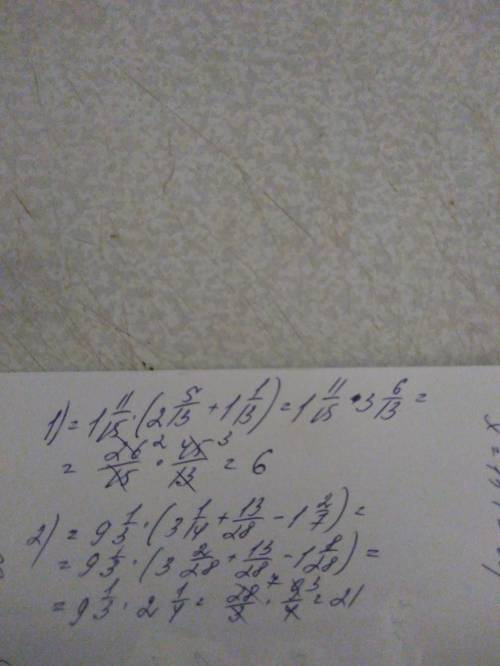 1) = 1 11/15 · (2 5/13 + 1 1/13) = 1 11/15 · 3 6/13 =
= 26/15 2 · 45/13 3 = 6
2) = 9 1/3 · (3 1/14 + 13/28 - 1 2/7) =
= 9 1/3 · (3 2/28 + 13/28 - 1 8/28) =
= 9 1/3 · 2 1/4 = 28/3 7 · 9/4 3 = 21